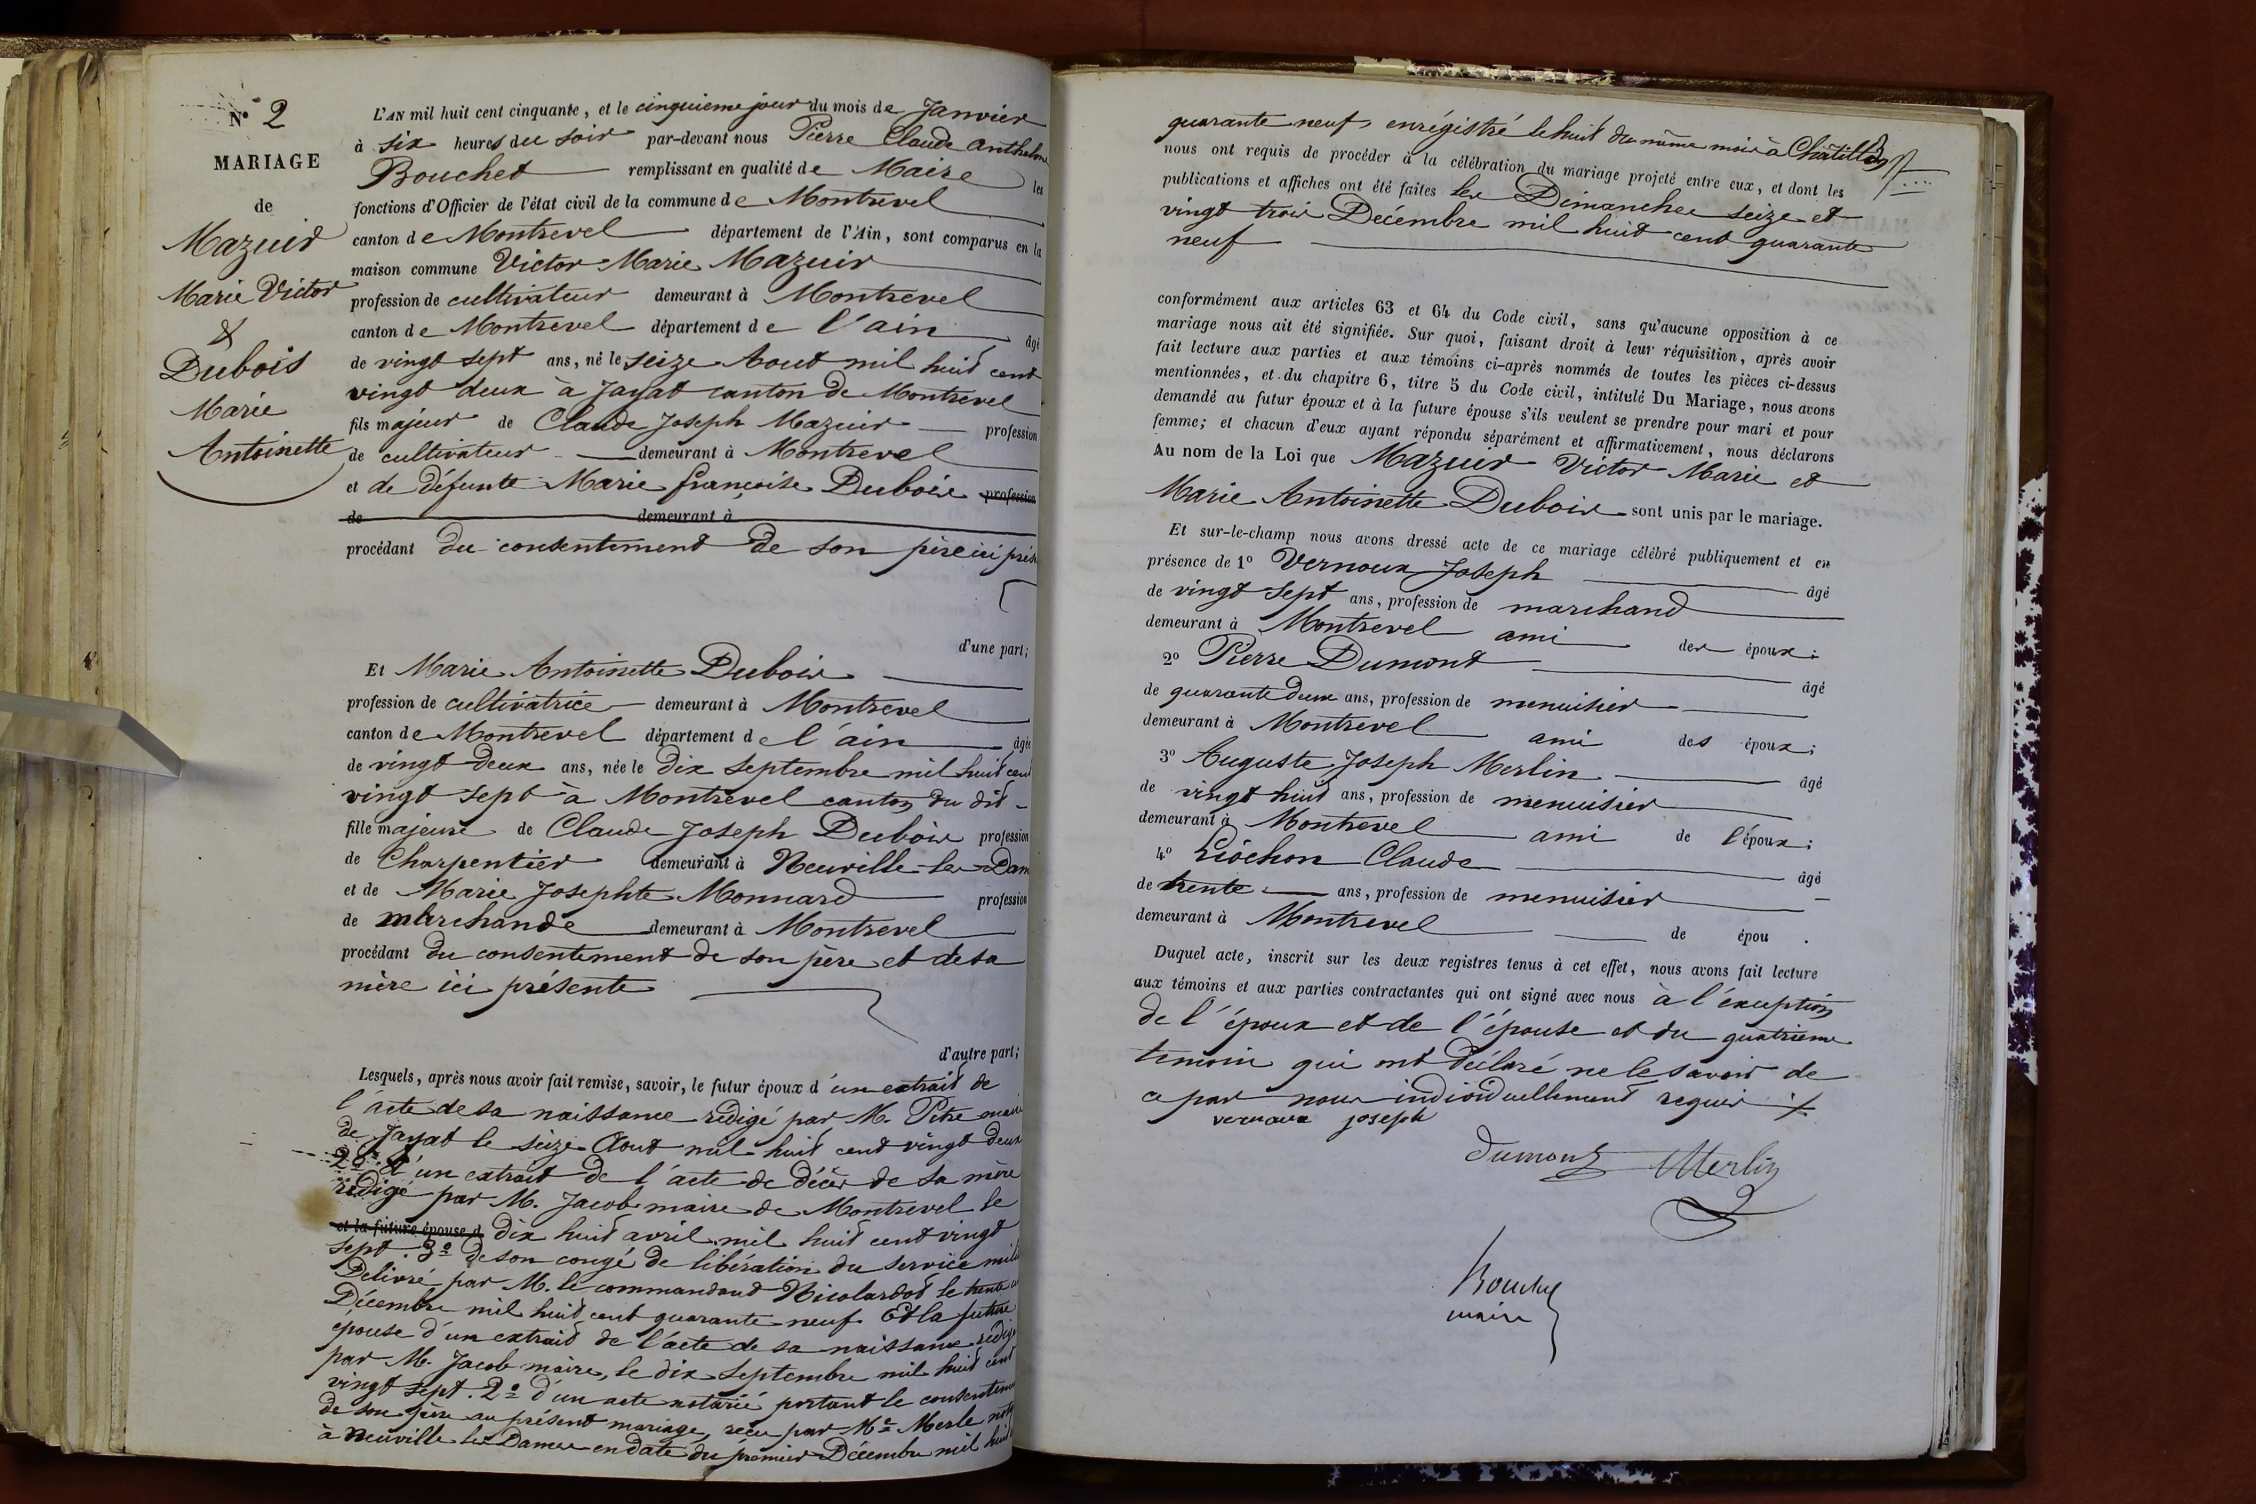 N° 2
MARIAGE
de
Mazuir
Marie Victor
&
Dubois
Marie
Antoinette
L'AN mil huit cent cinquante, et le cinquieme jour du mois de Janvier
à six heures du soir par-devant nous Pierre Claude Anthelme
Bouchet remplissant en qualité de Maire les
fonctions d'Officier de l'état civil de la commune de Montrevel
canton de Montrevel département de l'Ain, sont comparus en la
maison commune Victor Marie Mazuir
profession de cultivateur demeurant à Montrevel
canton de Montrevel département de l'ain âgé
de vingt sept ans, né le seize Aout mil huit cent
vingt deux à Jayat canton de Montrevel
fils majeur de Claude Joseph Mazuir profession
de cultivateur demeurant à Montrevel
et de défunte Marie françoise Dubois profession
de demeurant à
procédant du consentement de son père ici prés
d'une part;
Et Marie Antoinette Dubois
profession de cultivatrice demeurant à Montrevel
canton de Montrevel département de l'ain âgée
de vingt deux ans, née le dix Septembre mil huit cent
vingt sept à Montrevel canton du dit
fille majeure de Claude Joseph Dubois profession
de Charpentier demeurant à Neuville-les-Dam
et de Marie Josephte Monnard profession
de marchande demeurant à Montrevel
procédant du consentement de son père et de sa
mère ici présente
d'autre part;
Lesquels, après nous avoir fait remise, savoir, le futur époux d'un extrait de
l'acte de sa naissance rédigé par M. Pitre maire
de Jayat le seize Aout mil huit cent vingt deux
2° d'un extrait de l'acte de décès de sa mère
rédigé par M. Jacob maire de Montrevel le
et la future épouse d dix huit avril mil huit cent vingt
sept. 3° de son congé de libération du service mili
Délivré par M. le commandant Nicolardot le trente un
Décembre mil huit cent quarante neuf. Et la future
épouse d'un extrait de l'acte de sa naissance rédigé
par M. Jacob maire, le dix Septembre mil huit cent
vingt sept. 2° d'un acte notarié portant le consentem
de son père au présent mariage, reçu par Me Merle not
à Neuville les Dames en date du premier Décembre mil huit
quarante neuf, enrégistré le huit du même mois à Châtillon
nous ont requis de procéder à la célébration du mariage projeté entre eux, et dont les
publications et affiches ont été faites les Dimanches seize et
vingt trois Décembre mil huit cent quarante
neuf
conformément aux articles 63 et 64 du Code civil, sans qu'aucune opposition à ce
mariage nous ait été signifiée. Sur quoi, faisant droit à leur réquisition, après avoir
fait lecture aux parties et aux témoins ci-après nommés de toutes les pièces ci-dessus
mentionnées, et du chapitre 6, titre 5 du Code civil, intitulé Du Mariage, nous avons
demandé au futur époux et à la future épouse s'ils veulent se prendre pour mari et pour
femme; et chacun d'eux ayant répondu séparément et affirmativement, nous déclarons
Au nom de la Loi que Mazuir Victor Marie et
Marie Antoinette Dubois sont unis par le mariage.
Et sur-le-champ nous avons dressé acte de ce mariage célébré publiquement et en
présence de 1° Vernoux Joseph âgé
de vingt sept ans, profession de marchand
demeurant à Montrevel ami des époux;
2° Pierre Dumont âgé
de quarante deux ans, profession de menuisier
demeurant à Montrevel ami des époux;
3° Auguste Joseph Merlin âgé
de vingt huit ans, profession de menuisier
demeurant à Montrevel ami de l'époux;
4° Liochon Claude âgé
de trente ans, profession de menuisier
demeurant à Montrevel de épou .
Duquel acte, inscrit sur les deux registres tenus à cet effet, nous avons fait lecture
aux témoins et aux parties contractantes qui ont signé avec nous à l'exception
de l'époux et de l'épouse et du quatrieme
temoin qui ont déclaré ne le savoir de
ce par nous individuellement requis
vernoux joseph
Dumont Merlin
Bouchet
maire